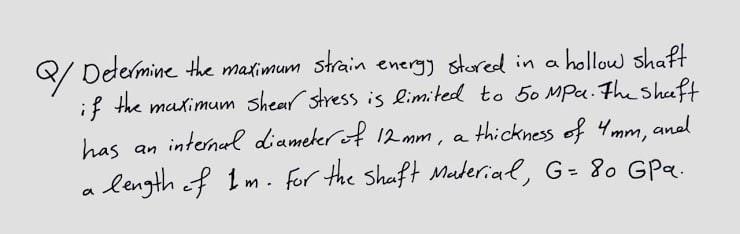 Q/ Determine the maximum strain energy stored in a hollow shaft
if the maximum shear stress is limited to 50 MPa. The shaft
has an internal diameter of 12 mm, a thickness of 4 mm, and
a length of 1 m. For the shaft Material, G = 80 GPa.